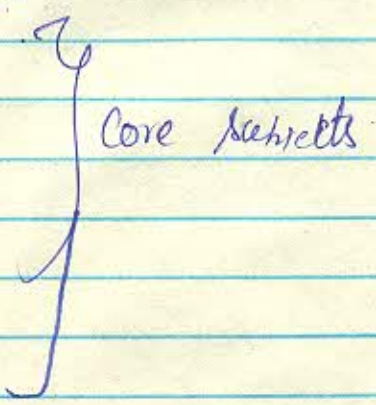 Core subjects